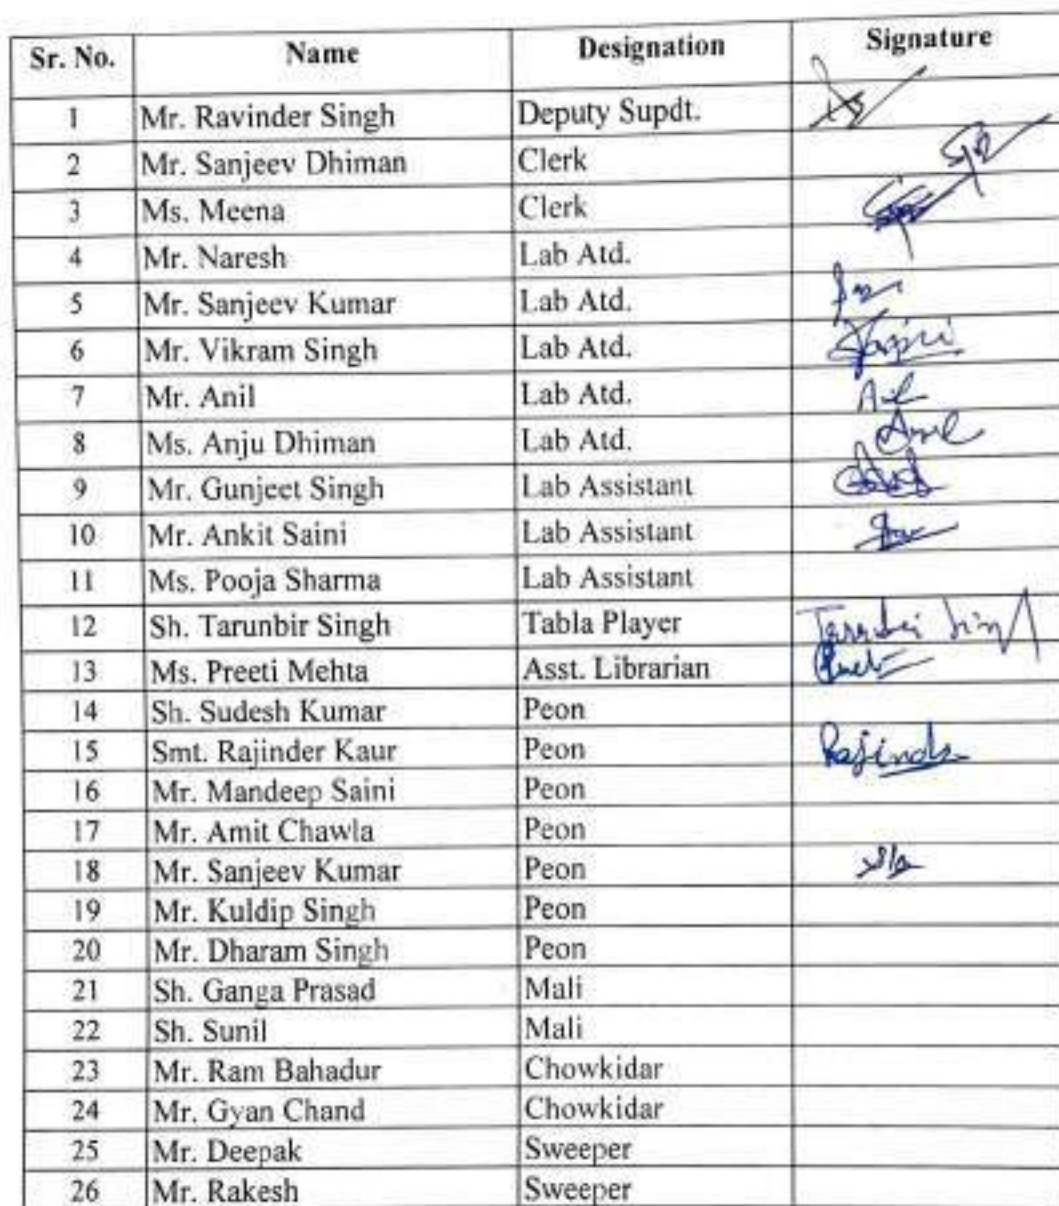 Sr. No. Name Designation Signature
1 Mr. Ravinder Singh Deputy Supdt.
2 Mr. Sanjeev Dhiman Clerk
3 Ms. Meena Clerk
4 Mr. Naresh Lab Atd.
5 Mr. Sanjeev Kumar Lab Atd.
6 Mr. Vikram Singh Lab Atd.
7 Mr. Anil Lab Atd.
8 Ms. Anju Dhiman Lab Atd.
9 Mr. Gunjeet Singh Lab Assistant
10 Mr. Ankit Saini Lab Assistant
11 Ms. Pooja Sharma Lab Assistant
12 Sh. Tarunbir Singh Tabla Player
13 Ms. Preeti Mehta Asst. Librarian
14 Sh. Sudesh Kumar Peon
15 Smt. Rajinder Kaur Peon
16 Mr. Mandeep Saini Peon
17 Mr. Amit Chawla Peon
18 Mr. Sanjeev Kumar Peon
19 Mr. Kuldip Singh Peon
20 Mr. Dharam Singh Peon
21 Sh. Ganga Prasad Mali
22 Sh. Sunil Mali
23 Mr. Ram Bahadur Chowkidar
24 Mr. Gyan Chand Chowkidar
25 Mr. Deepak Sweeper
26 Mr. Rakesh Sweeper